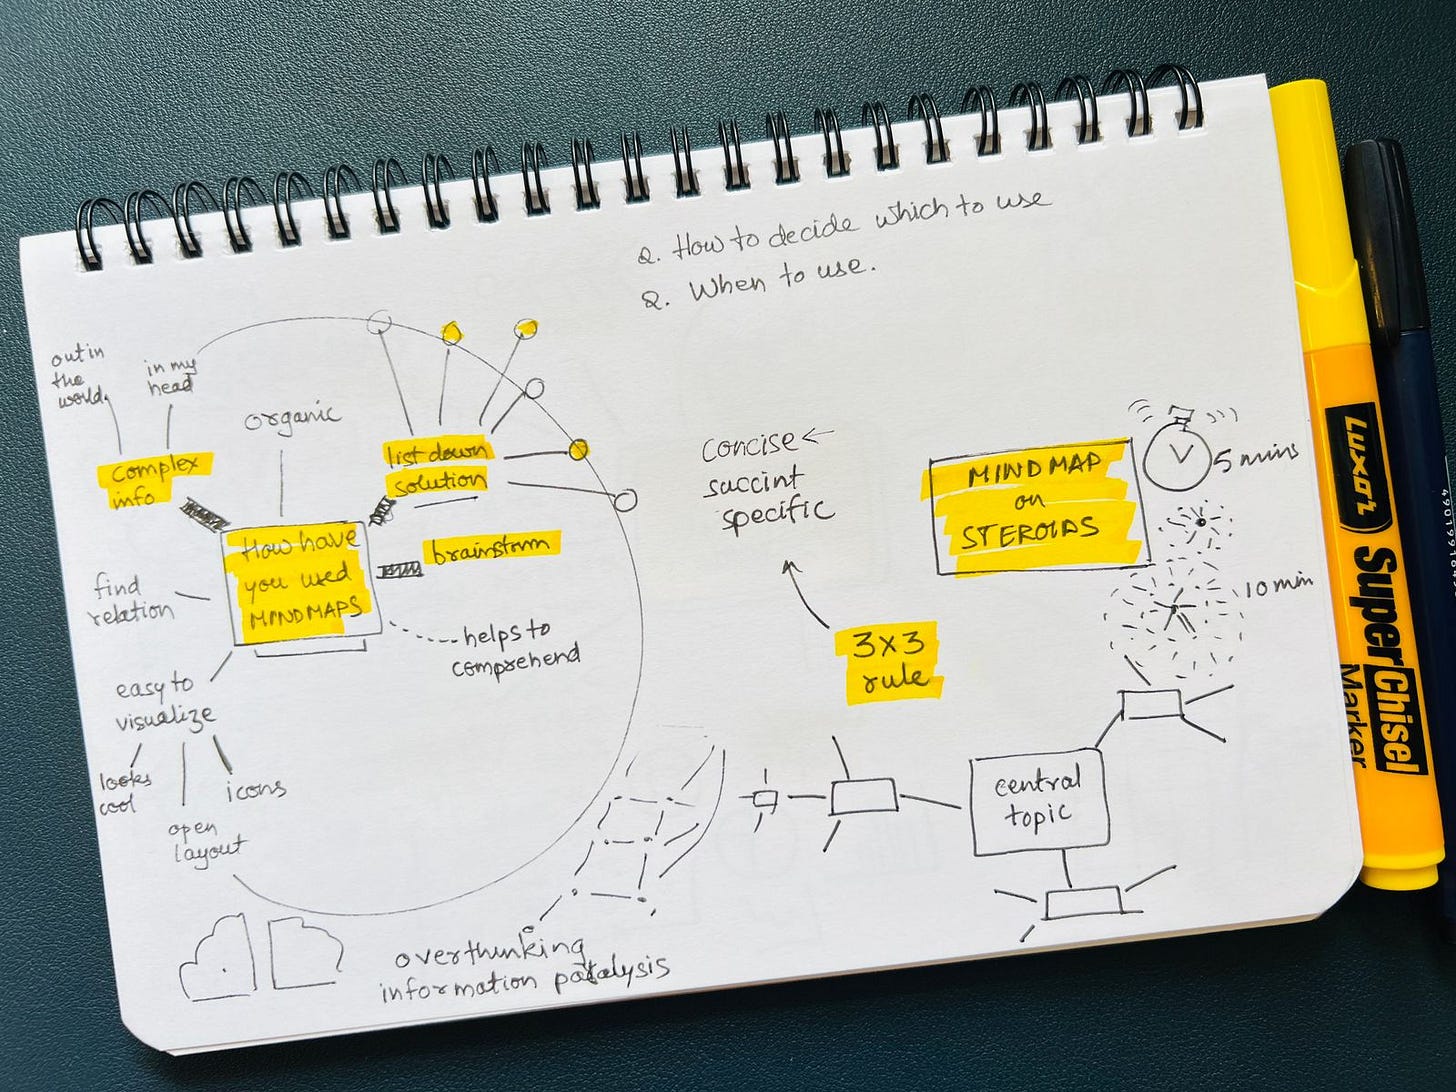 Q. How to decide which to use
Q. When to use.
out in
the
world.
in my
head
organic
complex
info
list down
solution
brainstorm
How have
you used
MINDMAPS
find
relation
helps to
comprehend
easy to
visualize
looks
cool
open
layout
icons
overthinking
information paralysis
concise ←
succint
specific
3x3
rule
MINDMAP
on
STEROIDS
5 mins
10 min
central
topic
LUXOR
SuperChisel
Marker